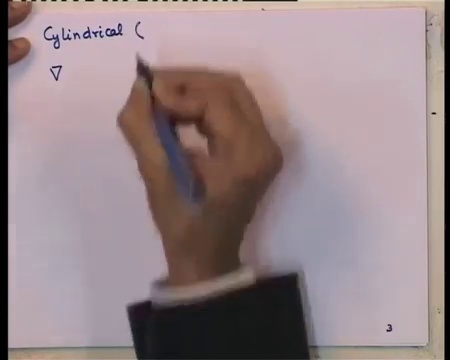 Cylindrical (
∇
3